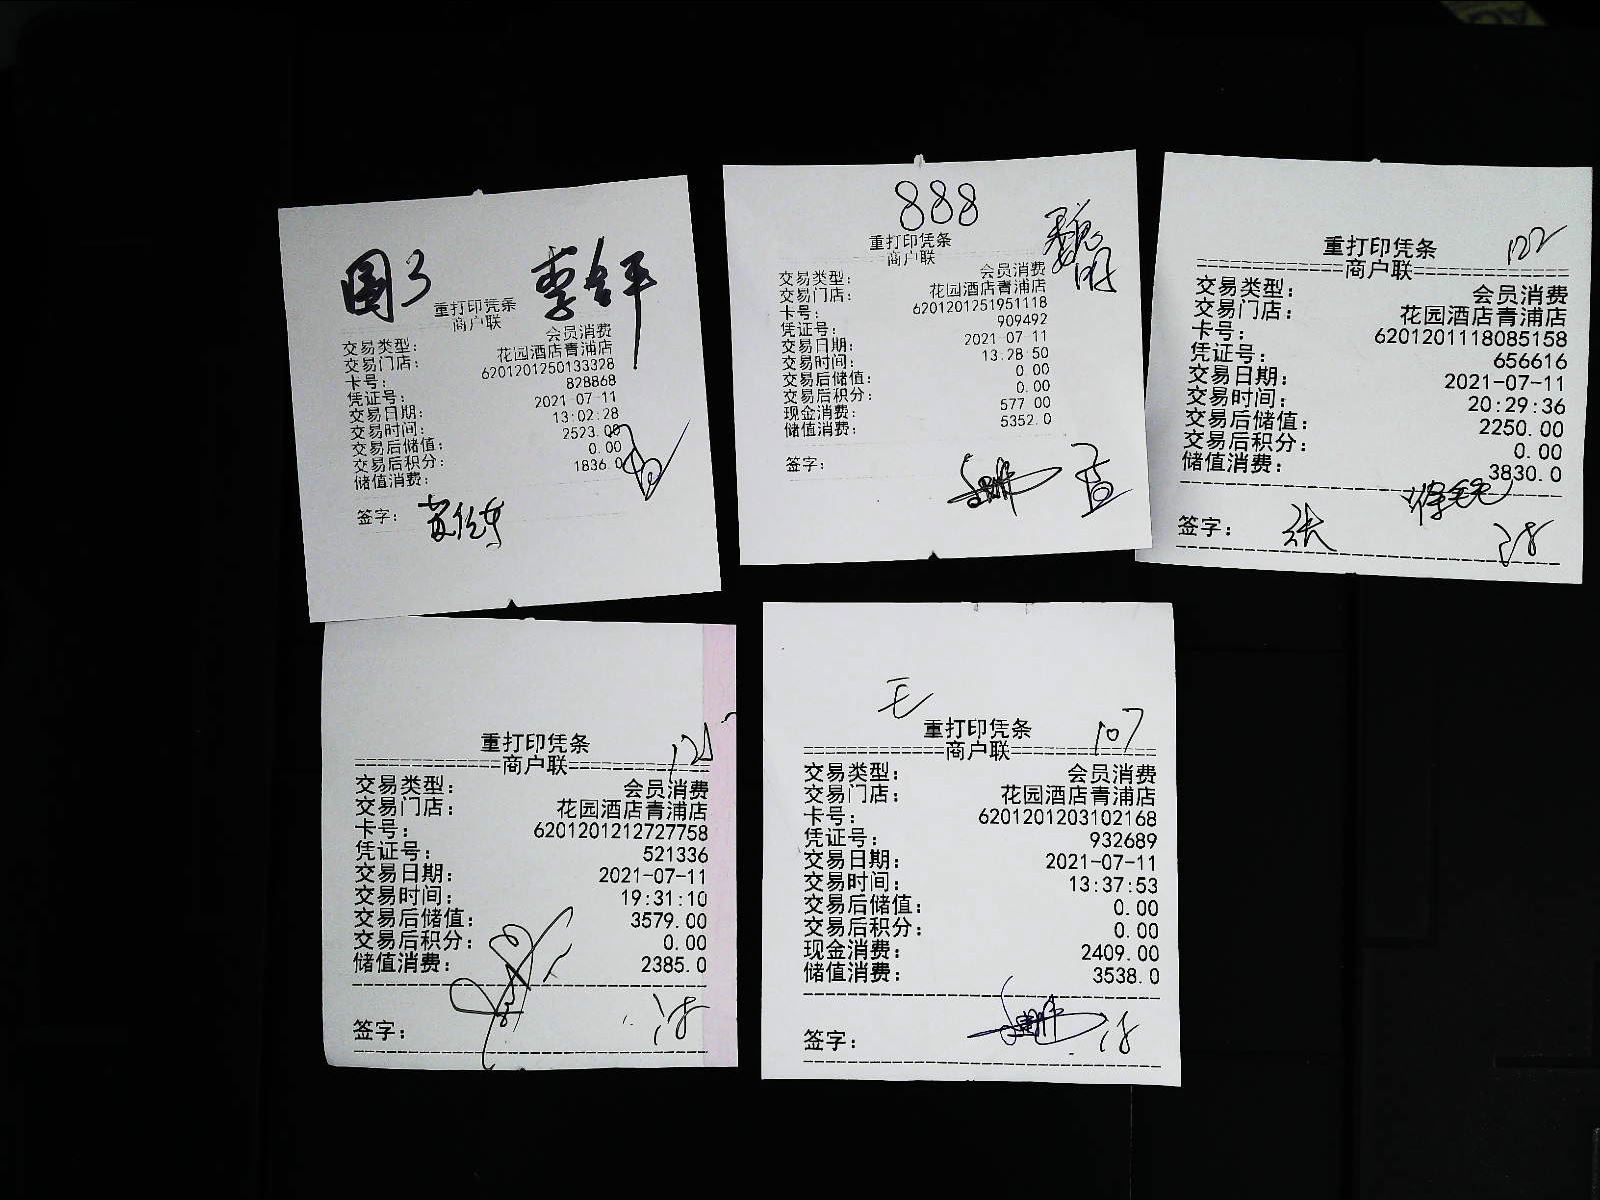 圆3 李金平
重打印凭条
商户联
交易类型： 会员消费
交易门店： 花园酒店青浦店
卡号： 6201201250133328
凭证号： 828868
交易日期： 2021-07-11
交易时间： 13:02:28
交易后储值： 2523.00
交易后积分： 0.00
储值消费： 1836.0
签字：
888
重打印凭条
商户联
交易类型： 会员消费
交易门店： 花园酒店青浦店
卡号： 6201201251951118
凭证号： 909492
交易日期： 2021-07-11
交易时间： 13:28:50
交易后储值： 0.00
交易后积分： 0.00
现金消费： 577.00
储值消费： 5352.0
签字：
122
重打印凭条
============商户联============
交易类型： 会员消费
交易门店： 花园酒店青浦店
卡号： 6201201118085158
凭证号： 656616
交易日期： 2021-07-11
交易时间： 20:29:36
交易后储值： 2250.00
交易后积分： 0.00
储值消费： 3830.0
签字： 张
重打印凭条
============商户联============
交易类型： 会员消费
交易门店： 花园酒店青浦店
卡号： 6201201212727758
凭证号： 521336
交易日期： 2021-07-11
交易时间： 19:31:10
交易后储值： 3579.00
交易后积分： 0.00
储值消费： 2385.0
签字：
毛
重打印凭条 107
============商户联============
交易类型： 会员消费
交易门店： 花园酒店青浦店
卡号： 6201201203102168
凭证号： 932689
交易日期： 2021-07-11
交易时间： 13:37:53
交易后储值： 0.00
交易后积分： 0.00
现金消费： 2409.00
储值消费： 3538.0
签字：